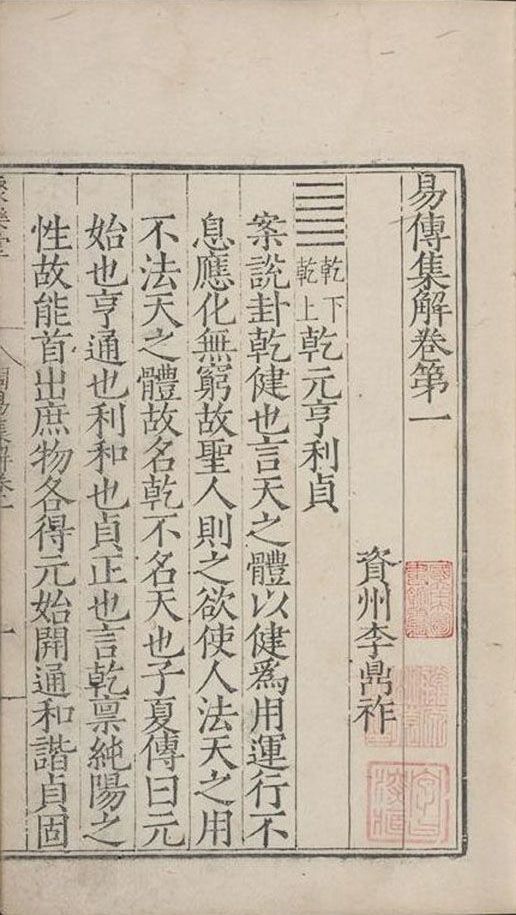 易傳集解卷第一
資州李鼎祚
乾下乾上乾元亨利貞
案說卦乾健也言天之體以健爲用運行不
息應化無窮故聖人則之欲使人法天之用
不法天之體故名乾不名天也子夏傳曰元
始也亨通也利和也貞正也言乾禀純陽之
性故能首出庶物各得元始開通和諧貞固